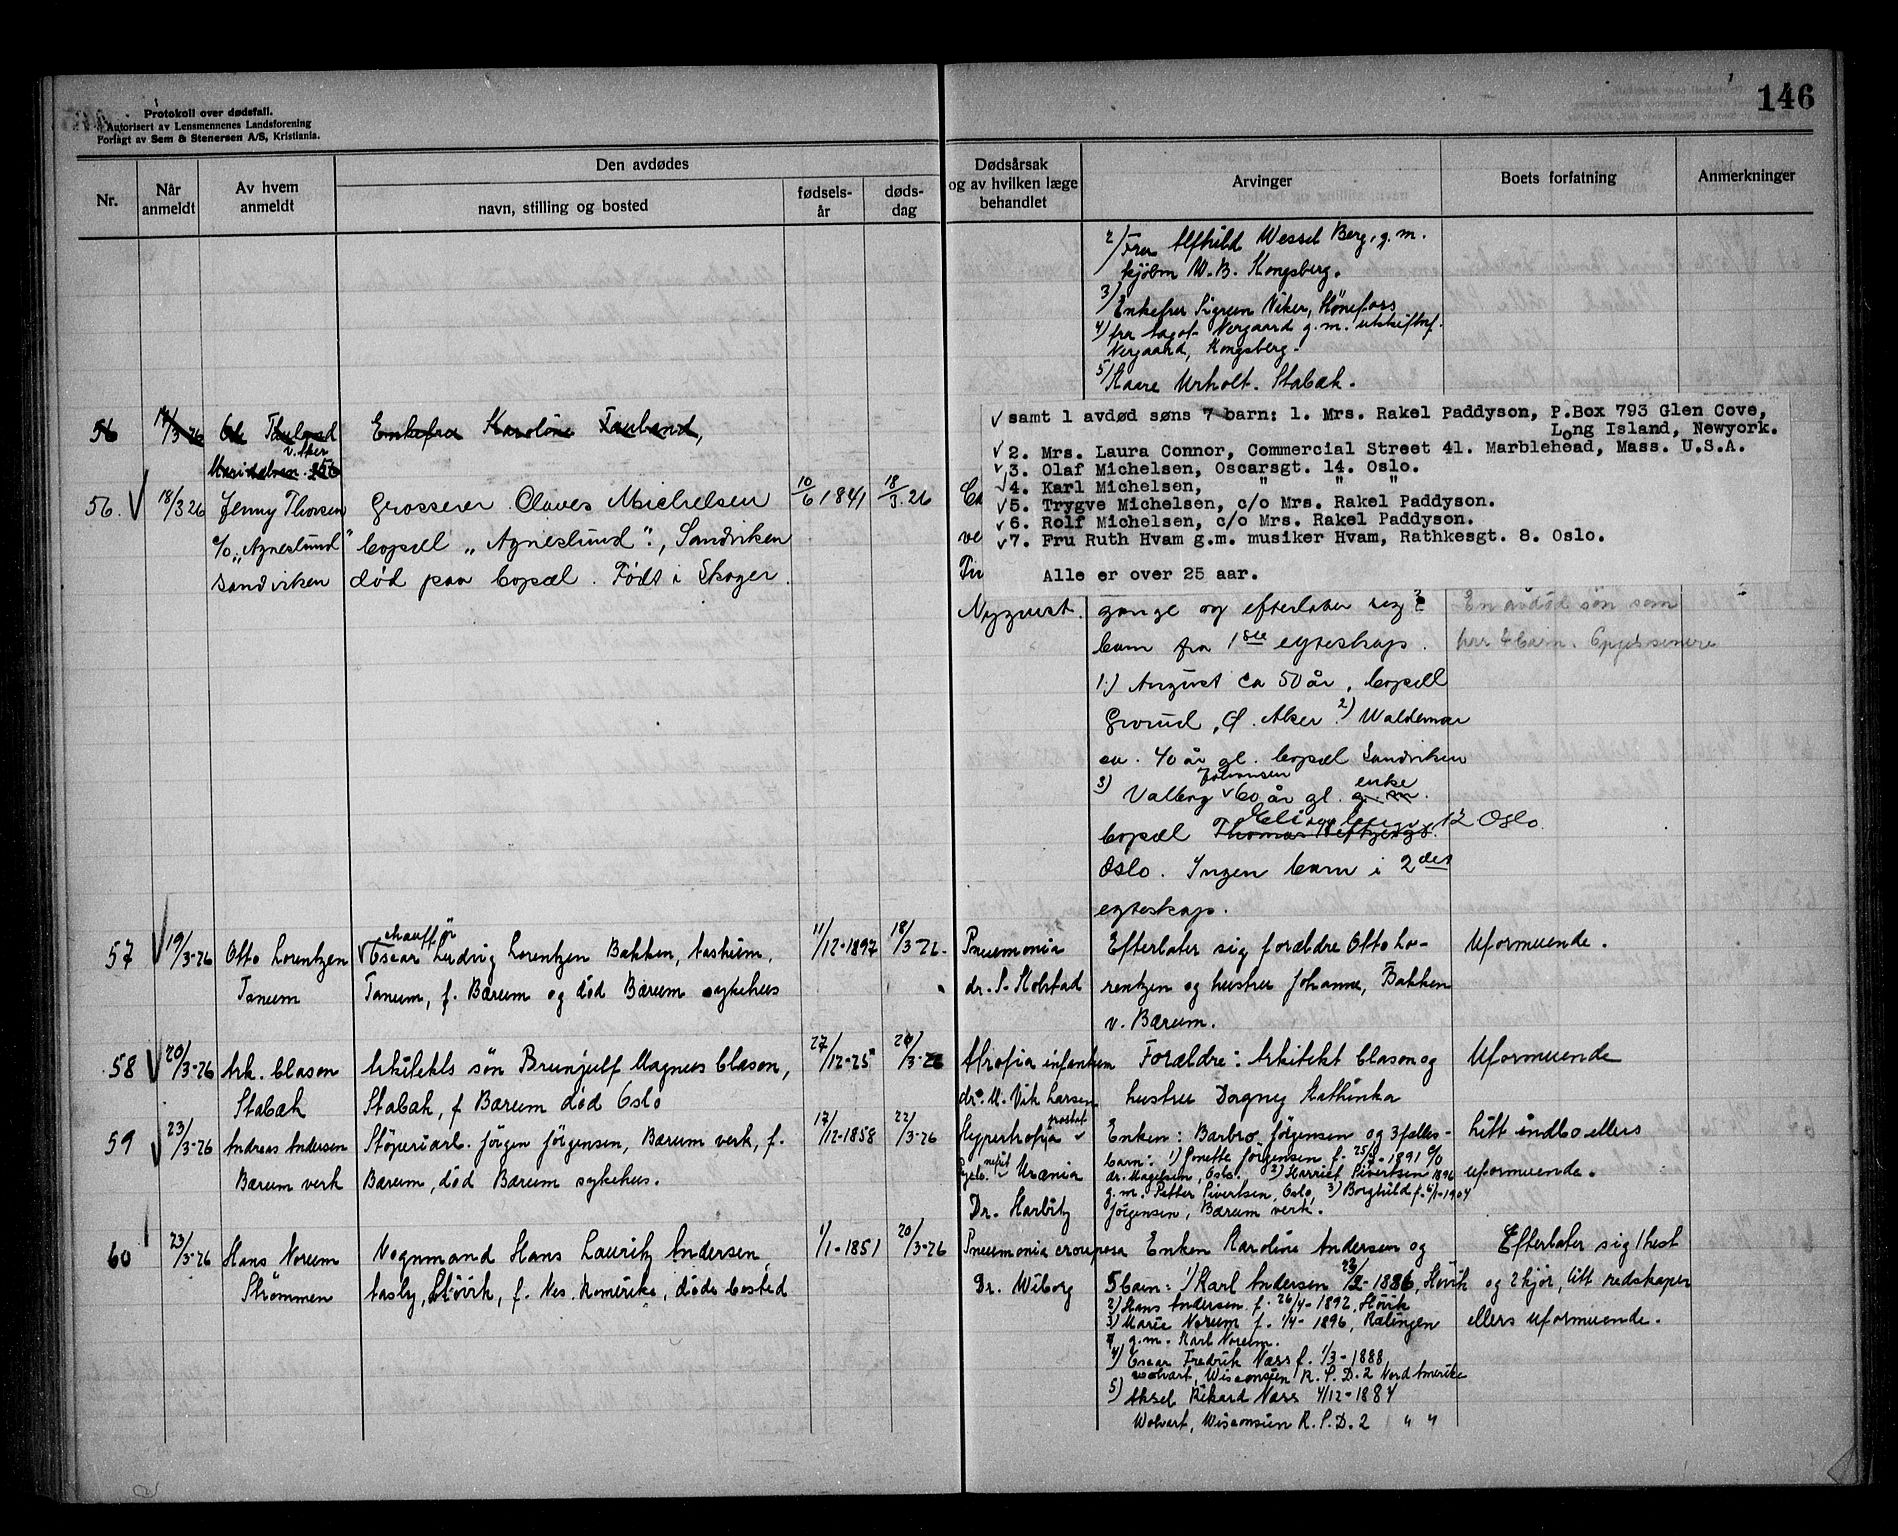 146
Protokoll over dødsfall.
Autorisert av Lensmennenes Landsforening
Forlagt av Sem & Stenersen A/S, Kristiania.
Nr.
Når anmeldt
Av hvem anmeldt
Den avdødes
navn, stilling og bosted
fødsels-år
døds-dag
Dødsårsak og av hvilken læge behandlet
Arvinger
Boets forfatning
Anmerkninger
2) Fru Alfhild Wessel Berg, g. m.
kjøbm W. B. Kongsberg.
3) Enkefru Sigrun Viker, Hönefoss
4) fru Nergaard g. m. utskiftnf.
Nergaard, Kongsberg.
5) Kaare Urholt. Stabæk.
56 Enkefru Karoline
samt 1 avdød søns 7 barn: 1. Mrs. Rakel Paddyson, P.Box 793 Glen Cove,
Long Island, Newyork.
2. Mrs. Laura Connor, Commercial Street 41. Marblehead, Mass. U.S.A.
3. Olaf Michelsen, Oscarsgt. 14. Oslo.
4. Karl Michelsen, " " "
5. Trygve Michelsen, c/o Mrs. Rakel Paddyson.
6. Rolf Michelsen, c/o Mrs. Rakel Paddyson.
7. Fru Ruth Hvam g.m. musiker Hvam, Rathkesgt. 8. Oslo.
Alle er over 25 aar.
56. 18/3 26 Jenny Thorsen Grosserer Olaves Michelsen 10/6 1841 18/3. 26
c/o "Agneslund" bopæl "Agneslund", Sandviken
Sandviken død paa bopæl. Født i Skoger.
Nyquist. gange og efterlater sig 3 En avdød søn som
barn fra 1ste egteskap. har barn.
1.) August ca 50 år, bopæll
Grorud, Ø. Aker 2) Waldemar
ca. 40 år gl. bopæl Sandviken
3) Valborg Johansen 60 år gl. enke g. m.
bopæl 12 Oslo
Oslo. Ingen barn i 2det
egteskap.
57 19/3-26 Otto Lorentzen chaufför Oscar Ludvig Lorentzen Bakken, 11/12-1897 18/3-26. Pneumonia Efterlater sig forældre Otto Lo- Uformuende.
Tanum Tanum, f. Bærum og død Bærum sykehus dr. S. Kolstad rentzen og hustru Johanne, Bakken
v. Bærum.
58 20/3-26 Ark. Clason Arkitekts søn Brunjulf Magnus Clason, 27/12-25 20/3-26 Atrofia infantum Forældre: Arkitekt Clason og Uformuende
Stabæk Stabæk, f Bærum død Oslo dr. M. Vik Larsen hustru Dagny Kathinka
59 23/3-26 Andreas Andersen Støperiarb. Jörgen Jörgensen, Bærum verk, f. 17/12-1858 22/3-26 Hypertrofia prostat Enken: Barbro Jörgensen og 3 fælles- Litt indbo ellers
Bærum verk Bærum, død Bærum sykehus. Uræmia barn: 1) Jörgensen f. 1891 c/o uformuende.
dr. Magelsen, Oslo. 2) Harriet Sivertsen 1896
g. m. Petter Sivertsen, Oslo, 3) Borghild f. 1904
Dr. Harbitz Jörgensen, Bærum verk.
60 23/3-26 Hans Norum Vognmand Hans Lauritz Andersen, 1/1-1851 20/3-26 Pneumonia crouposa Enken Karoline Andersen og Efterlater sig 1 hest
Strømmen Aasly, Høvik, f. Nes, Romerike, døds bosted Dr. Wiborg 5 barn: 1) Karl Andersen 23/2-1886, Høvik og 2 kjør, litt redskaper
2) Hans Andersen f. 26/4-1892, Høvik
3) Marie Norum f. 1/4-1896, Rælingen ellers uformuende.
g. m. Karl Norum.
4) Oscar Fredrik Næss f. 1/3-1888
Wolvart, Wisconsien R. F. D. 2 Nord Amerika
5) Aksel Rikard Næss 4/12-1884
Wolvart, Wisconsien R. F. D. 2 " "